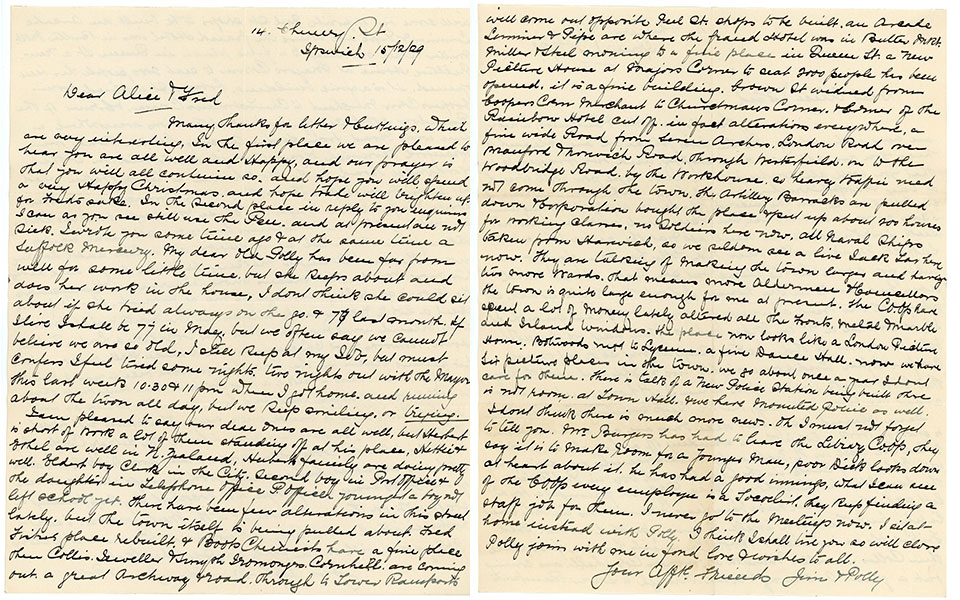 14. Church St
Ipswich 15/12/29
Dear Alice & Fred
Many thanks for letter & Cuttings, which
are very interesting, In the first place we are pleased to
hear you are all well and Happy, and our prayer is
that you will all continue so. and hope you will spend
a very Happy Christmas. and hope trade will brighten up
for Freds sake. In the second place in reply to you enquiries
I can as you see still use the Pen. and at present are not
sick. I wrote you some time ago & at the same time a
Suffolk Mercury. My dear old Polly has been far from
well for some little time, but she keeps about and
does her work in the house, I dont think she could sit
about if she tried always on the go. & 79 last month. If
I live I shall be 77 in May, but we often say we cannot
believe we are so old, I still keep at my Job, but must
confess I feel tired some nights, two nights out with the Mayor
this last week 10.30 & 11 pm when I got home. and running
about the town all day, but we keep smiling, or trying.
I am pleased to say our dear ones are all well, but Herbert
is short of work a lot of them standing off at his place, Nettie &
Ethel are well in N. Zealand, Huberts family are doing pretty
well. Eldest boy Clerk in the City. second boy in Postoffice &
the daughter in Telephone office P Office. youngest a boy not
left school yet. There have been few alterations in this street
lately. but the town itself is being pulled about. Fred
Fritons place rebuilt, & Boots Chemists have a fine place
then Collis. Jeweller & Smyth Ironmongrs. Cornhill are coming
out. a great Archway & road. through to Lower Ramparts
will come out opposite Peel St. shops to be built. an Arcade
Limmer & Pipe are where the Hotel was in Butter Mrkt.
Miller & Steel moving to a fine place in Queen St. a New
Picture House at Majors Corner to seat 2000 people has been
opened. it is a fine building. Crown St widened from
Coopers Corn Merchant to Churchmans Corner. & Corner of the
Rainbow Hotel cut off. in fact alterations everywhere, a
fine wide Road from Seven Arches, London Road over
Hanford & Norwich Road, through Westerfield. on to the
Woodbridge Road. by the Workhouse. so heavy traffic need
not come through the town. the Artillery Barracks are pulled
down & Corporation bought the place & put up about 200 houses
for working classes, no Soldiers here now. all Naval Ships
taken from Harwich, so we seldom see a live Jack Tar here
now. They are talking of making the town larger and having
two more Wards. that means more Aldermen & Councellors
the town is quite large enough for me at present. The Coop have
spent a lot of money lately altered all the fronts. metal Marble
and Island windows. the place now looks like a London Picture
House. Botwoods next to Lyceum. a fine Dance Hall. now we have
six picture places in the town. we go about once a year I dont
care for them. There is talk of a New Police Station being built there
is not room at Town Hall. & we have Mounted Police as well.
I dont think there is much more news. Oh I must not forget
to tell you. Mr. Burgess has had to leave the Library Coop, they
say it is to make room for a Younger Man, poor Dick looks down
at heart about it. he has had a good innings, what I can see
of the Coops every employee is a Socialist, they keep finding a
staff job for them. I never go to the Meetings now. I sit at
home instead with Polly. I think I shall tire you so will close
Polly joins with me in fond love & wishes to all.
Your Afft. Friends Jim & Polly